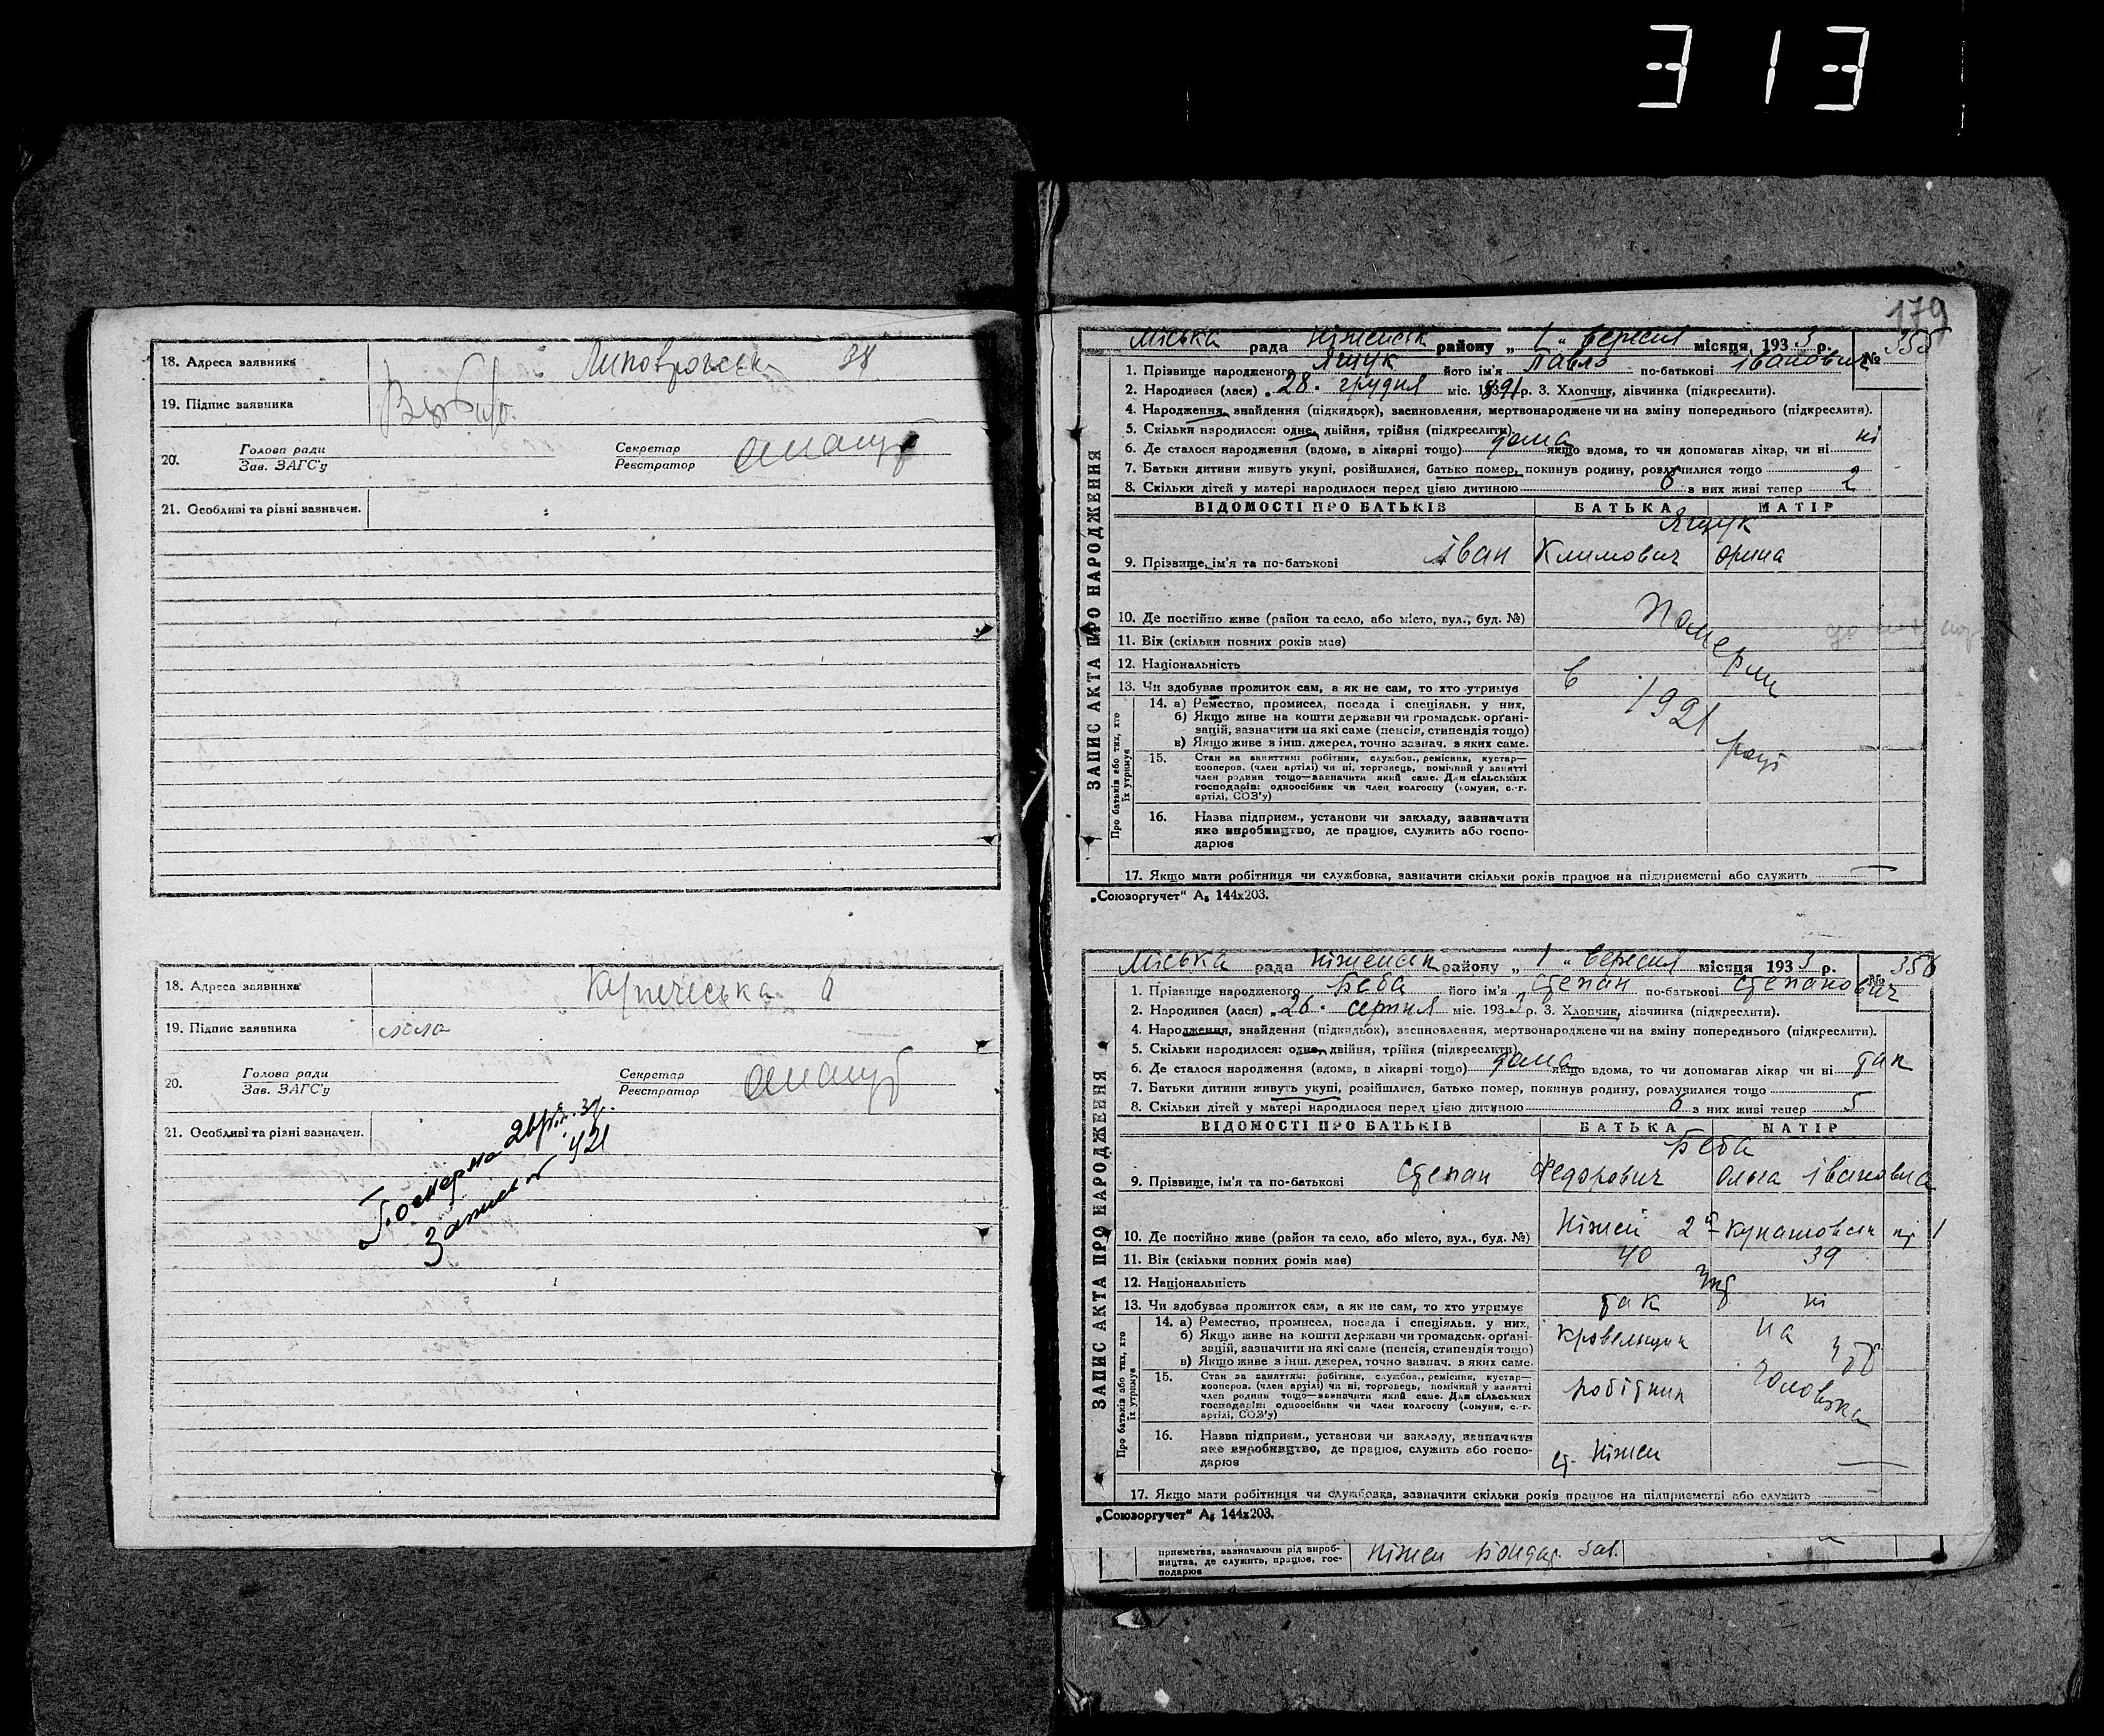 313
18. Адреса заявника Липоврожськ 38
19. Підпис заявника
20. Голова ради Секретар
Зав. ЗАГС'у Реєстратор
21. Особливі та різні зазначен.
18. Адреса заявника Купечеська 6
19. Підпис заявника
20. Голова ради Секретар
Зав. ЗАГС'у Реєстратор
21. Особливі та різні зазначен.
Померла
Запись № 421
179
ЗАПИС АКТА ПРО НАРОДЖЕННЯ
Міська рада Ніженськ району „ 1 “ вересня місяця 1933 р. № 355
1. Прізвище народженого Ящук його ім'я Павло по-батькові Іванович
2. Народився (лася) „28. грудня міс. 1891 р. 3. Хлопчик, дівчинка (підкреслити).
4. Народження, знайдення (підкидьок), засиновлення, мертвонароджене чи на зміну попереднього (підкреслити).
5. Скільки народилося: одне, двійня, трійня (підкреслити)
6. Де сталося народження (вдома, в лікарні тощо) дома якщо вдома, то чи допомагав лікар, чи ні ні
7. Батьки дитини живуть укупі, розійшлися, батько помер, покинув родину, розлучилися тощо
8. Скільки дітей у матері народилося перед цією дитиною 6 з них живі тепер 2
ВІДОМОСТІ ПРО БАТЬКІВ БАТЬКА МАТІР
Ящук
9. Прізвище, ім'я та по-батькові Іван Климович Орина
10. Де постійно живе (район та село, або місто, вул., буд. №) Померли
11. Вік (скільки повних років має)
12. Національність в 1921 році
13. Чи здобуває прожиток сам, а як не сам, то хто утримує
Про батьків або тих, хто їх утримує
14. а) Ремество, промисел, посада і спеціяльн. у них,
б) Якщо живе на кошти держави чи громадськ. органі-
зацій, зазначити на які саме (пенсія, стипендія тощо)
в) Якщо живе з інш. джерел, точно зазнач. з яких саме.
15. Стан за заняттям: робітник, службов., ремісник, кустар—
кооперов. (член артілі) чи ні, торговець, помічний у занятті
член родини тощо—зазначити який саме. Для сільських
господарів: одноосібник чи член колгоспу (комуни, с.-г.
артілі, СОЗ'у)
16. Назва підприєм., установи чи закладу, зазначати
яке виробництво, де працює, служить або госпо-
дарює
17. Якщо мати робітниця чи службовка, зазначити скільки років працює на підприємстві або служить —
„Союзоргучет“ А5 144x203.
ЗАПИС АКТА ПРО НАРОДЖЕННЯ
Міська рада Ніженськ району „ 1 “ вересня місяця 1933 р. № 356
1. Прізвище народженого Беба його ім'я Степан по-батькові Степанович
2. Народився (лася) „26. серпня міс. 1933 р. 3. Хлопчик, дівчинка (підкреслити).
4. Народження, знайдення (підкидьок), засиновлення, мертвонароджене чи на зміну попереднього (підкреслити).
5. Скільки народилося: одне, двійня, трійня (підкреслити)
6. Де сталося народження (вдома, в лікарні тощо) дома якщо вдома, то чи допомагав лікар чи ні так
7. Батьки дитини живуть укупі, розійшлися, батько помер, покинув родину, розлучилися тощо
8. Скільки дітей у матері народилося перед цією дитиною 6 з них живі тепер 5
ВІДОМОСТІ ПРО БАТЬКІВ БАТЬКА МАТІР
Беба
9. Прізвище, ім'я та по-батькові Степан Федорович Ольга Івановна
10. Де постійно живе (район та село, або місто, вул., буд. №) Ніжен 2а Кунашовськ 1
11. Вік (скільки повних років має) 40 39
12. Національність Укр
13. Чи здобуває прожиток сам, а як не сам, то хто утримує так ні
Про батьків або тих, хто їх утримує
14. а) Ремество, промисел, посада і спеціяльн. у них, кровельщик на
б) Якщо живе на кошти держави чи громадськ. органі-
зацій, зазначити на які саме (пенсія, стипендія тощо) утр
в) Якщо живе з інш. джерел, точно зазнач. з яких саме.
15. Стан за заняттям: робітник, службов., ремісник, кустар— робітник чоловіка
кооперов. (член артілі) чи ні, торговець, помічний у занятті
член родини тощо—зазначити який саме. Для сільських
господарів: одноосібник чи член колгоспу (комуни, с.-г.
артілі, СОЗ'у)
16. Назва підприєм., установи чи закладу, зазначати
яке виробництво, де працює, служить або госпо-
дарює ст. Ніжен
17. Якщо мати робітниця чи службовка, зазначити скільки років працює на підприємстві або служить —
„Союзоргучет“ А5 144x203.
приємства, зазначаючи рід вироб-
ництва, де служить, працює, гос-
подарює Ніжен Бондар. Зав.